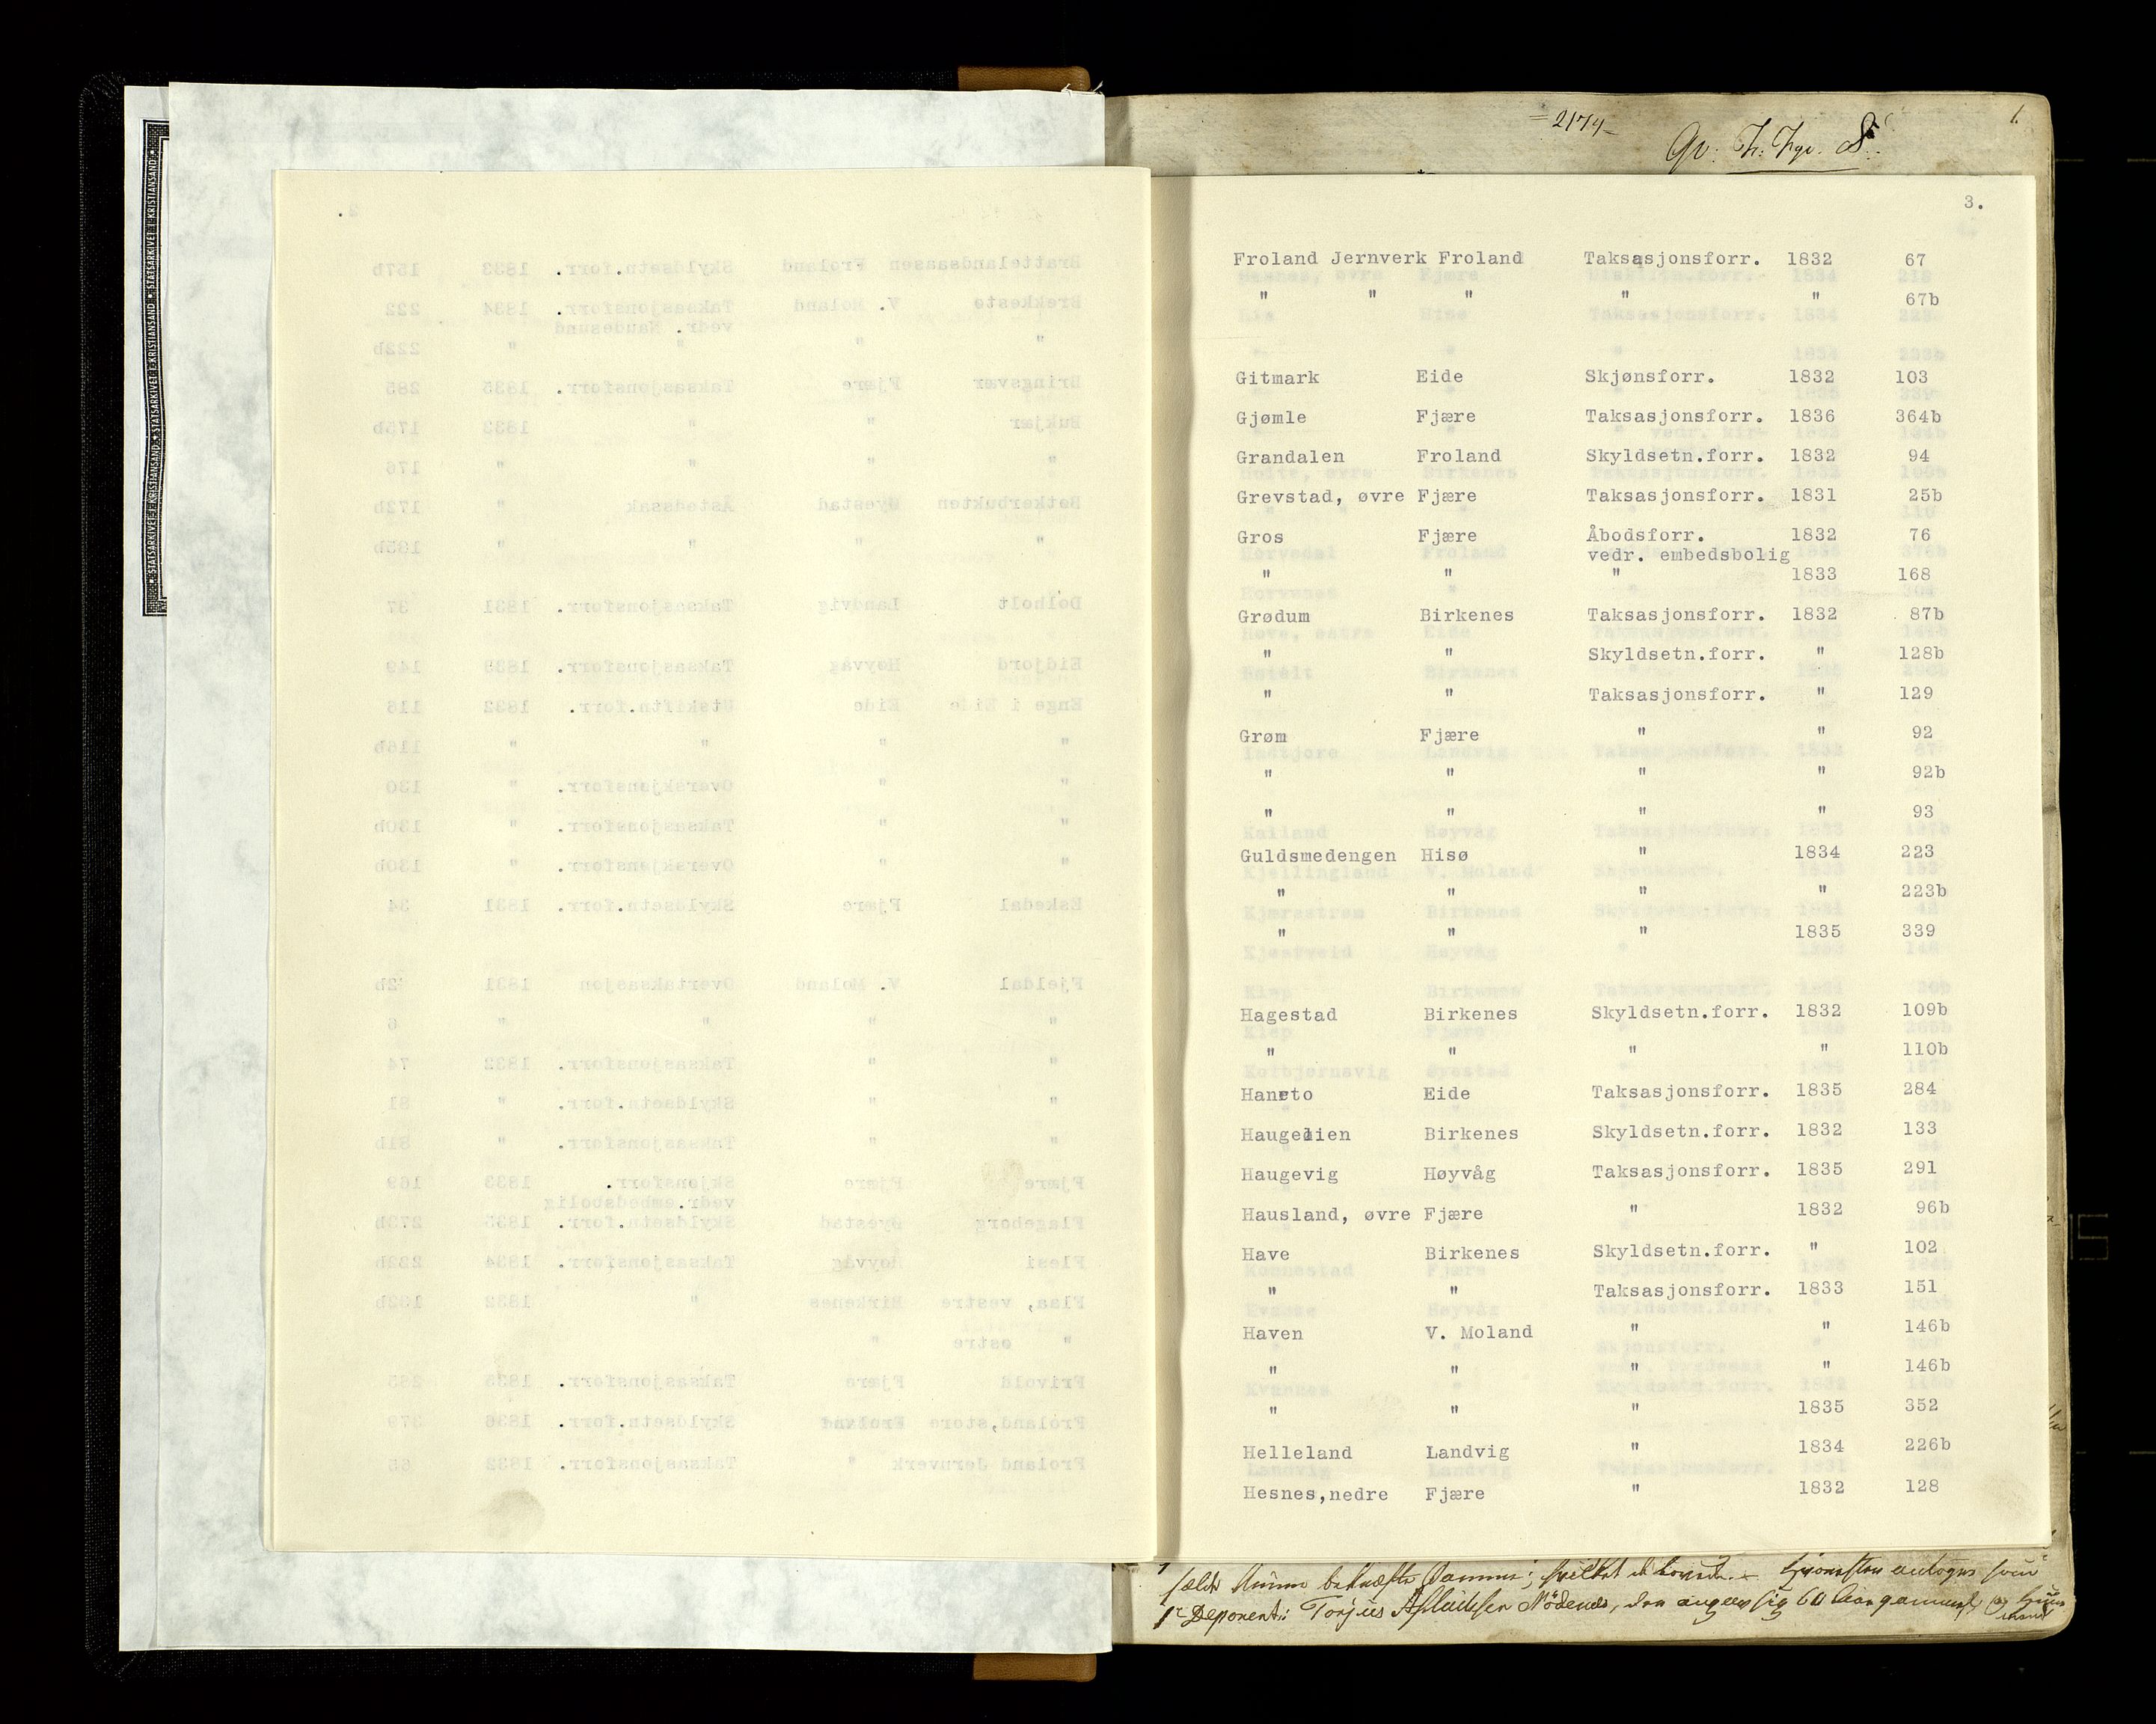 STATSARKIVET I KRISTIANSAND ★ STATSARKIVET I KRISTIANSAND ★ STATSARKIVET I KRISTIANSAND ★
= 2174 -
1.
3.
Froland Jernverk Froland Taksasjonsforr. 1832 67
" " " " " 67b
Gitmark Eide Skjønsforr. 1832 103
Gjømle Fjære Taksasjonsforr. 1836 364b
Grandalen Froland Skyldsetn.forr. 1832 94
Grevstad, øvre Fjære Taksasjonsforr. 1831 25b
Gros Fjære Åbodsforr. 1832 76
vedr. embedsbolig
" " " 1833 168
Grødum Birkenes Taksasjonsforr. 1832 87b
" " Skyldsetn.forr. " 128b
" " Taksasjonsforr. " 129
Grøm Fjære " " 92
" " " " 92b
" " " " 93
Guldsmedengen Hisø " 1834 223
" " " " 223b
" " " 1835 339
Hagestad Birkenes Skyldsetn.forr. 1832 109b
" " " " 110b
Hanrto Eide Taksasjonsforr. 1835 284
Haugelien Birkenes Skyldsetn.forr. 1832 133
Haugevig Høyvåg Taksasjonsforr. 1835 291
Hausland, øvre Fjære " 1832 96b
Have Birkenes Skyldsetn.forr. " 102
" " Taksasjonsforr. 1833 151
Haven V. Moland " " 146b
" " " " 146b
" " " 1835 352
Helleland Landvig " 1834 226b
Hesnes,nedre Fjære " 1832 128